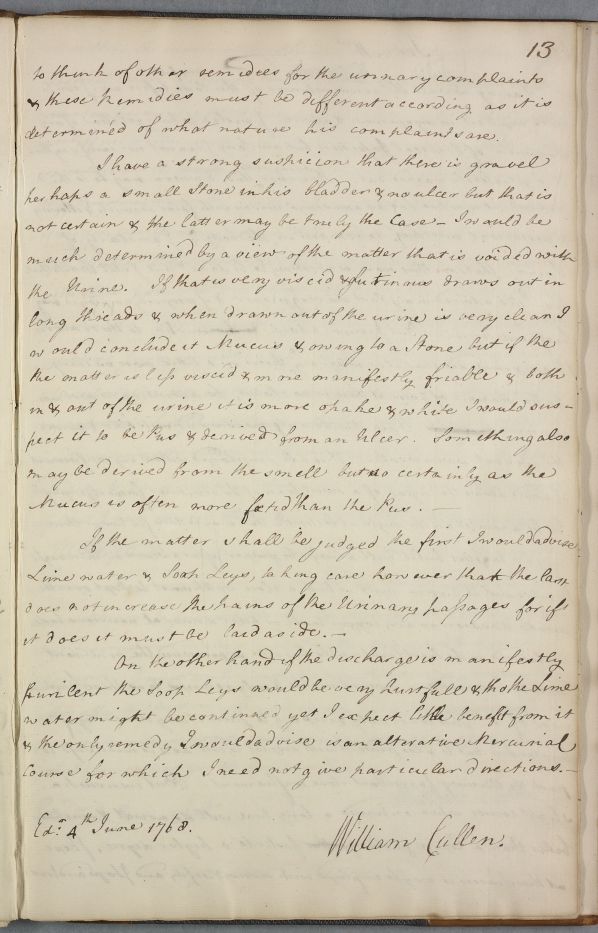 13
to think of other remidees for the urinary complaints
& these Remidies must be different according as it is
determin'd of what nature his complaints are.
I have a strong suspicion that there is gravel
perhaps a small Stone in his bladder & no ulcer but that is
not certain & the latter may be truly the Case – I would be
much determined by a view of the matter that is voided with
the Urine. If that is very viscid & glutinous draws out in
long threads & when drawn out of the urine is very clean I
would conclude it Mucus & owing to a Stone but if the
the matter is less viscid & more manifestly friable & both
in & out of the urine it is more opake & white I would sus-
pect it to be Pus & derived from an Ulcer. Something also
may be derived from the smell but no certainly as the
Mucus is often more fœtid than the Pus. –
If the matter shall be judged the first I would advise
Lime water & Soap Leys, taking care however that the last
does not increase the pains of the Urinary passages for if
it does it must be laid aside. –
On the other hand if the discharge is manifestly
purilent the Soap Leys would be very hurtfull & tho the Lime
water might be continued yet I expect little benefit from it
& the only remedy I would advise is an alterative Mercurial
Course for which I need not give particular directions. –
Edr. 4th June 1768.
William Cullen.